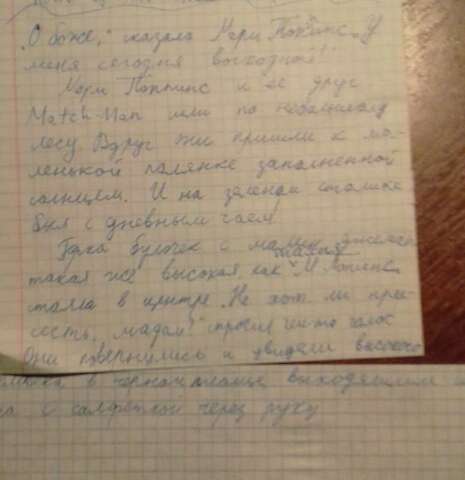 „О боже," сказала Мэри Поппинс „У
меня сегодня выходной!"
Мэри Поппинс и её друг
Match-Man шли по небольшому
лесу. Вдруг они пришли к ма-
ленькой полянке заполненной
солнцем. И на зелёном столике
был с дневным чаем.
Горка булочек с малин джемом
малин
такая же высокая как М. Поппинс
стала в центре. „Не хот ли при-
сесть, мадам?" просил чей-то голос
Они повернулись и увидели высокого
в чёрном плаще выходящим
с салфеткой через руку